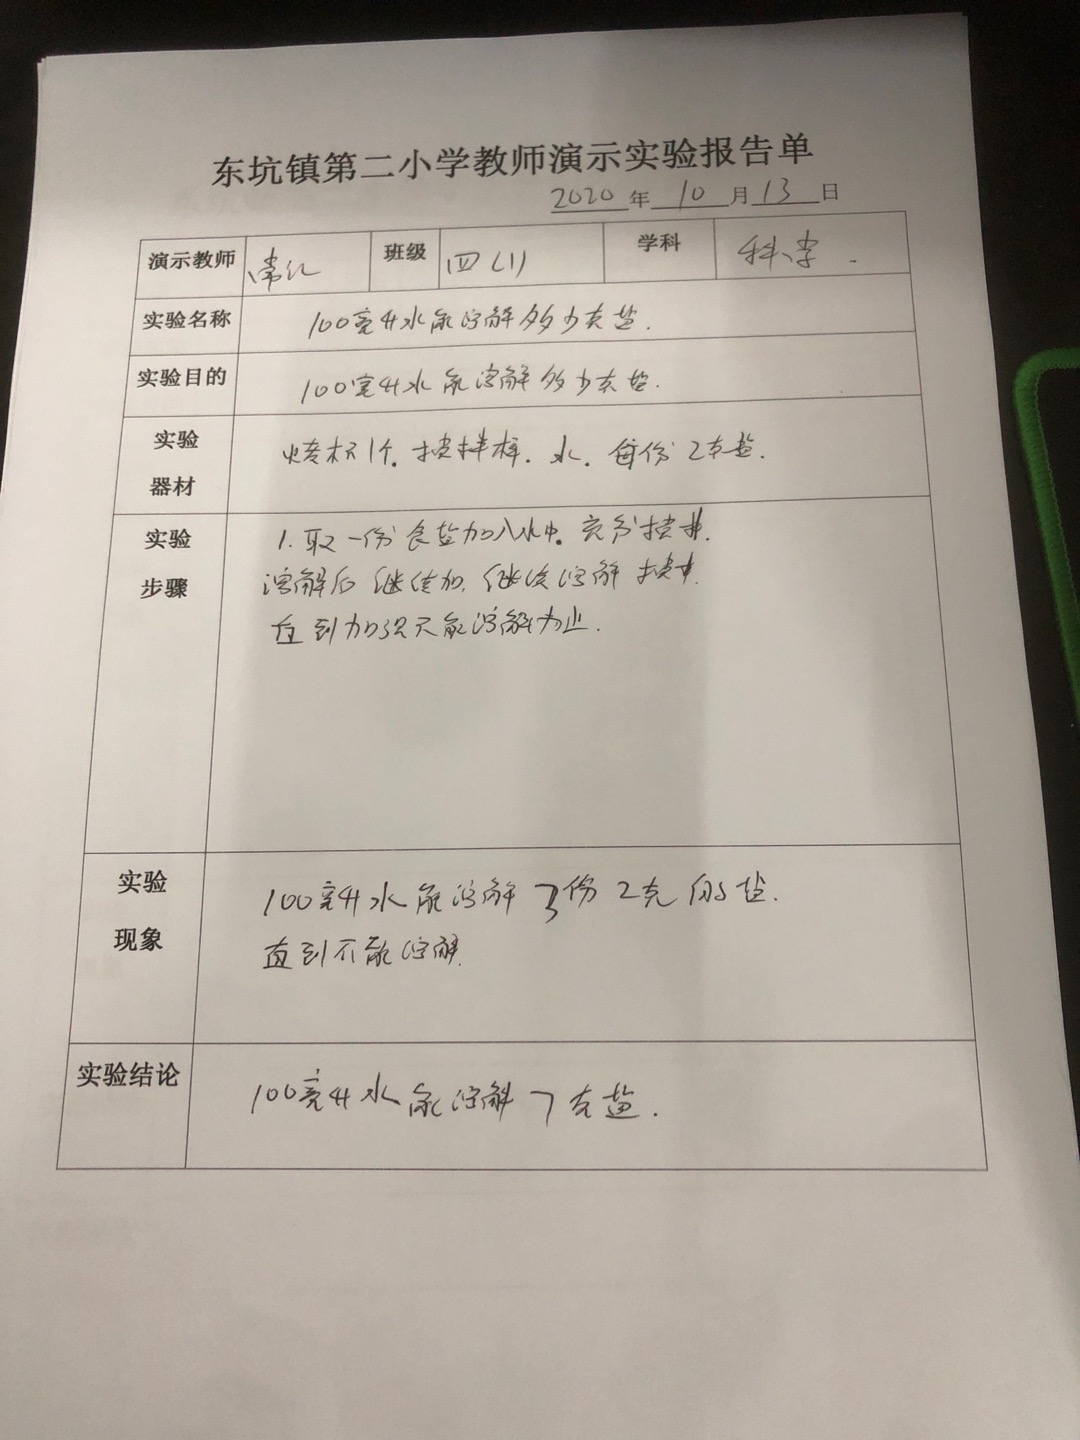 东坑镇第二小学教师演示实验报告单
2020年10月13日
演示教师 班级 四(1) 学科 科学.
实验名称 100毫升水能溶解多少克盐.
实验目的 100毫升水能溶解多少克盐.
实验 器材 烧杯1个. 搅拌棒. 水. 每份2克盐.
实验 步骤
1.取一份食盐加入水中. 充分搅拌.
溶解后继续加, 继续溶解搅拌.
直到加到不能溶解为止.
实验 现象
100毫升水能溶解 份2克的盐.
直到不能溶解.
实验结论 100毫升水能溶解7克盐.